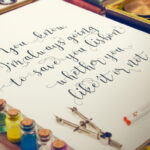 You know,
I'm always going
to save you listen
whether you
like it or not